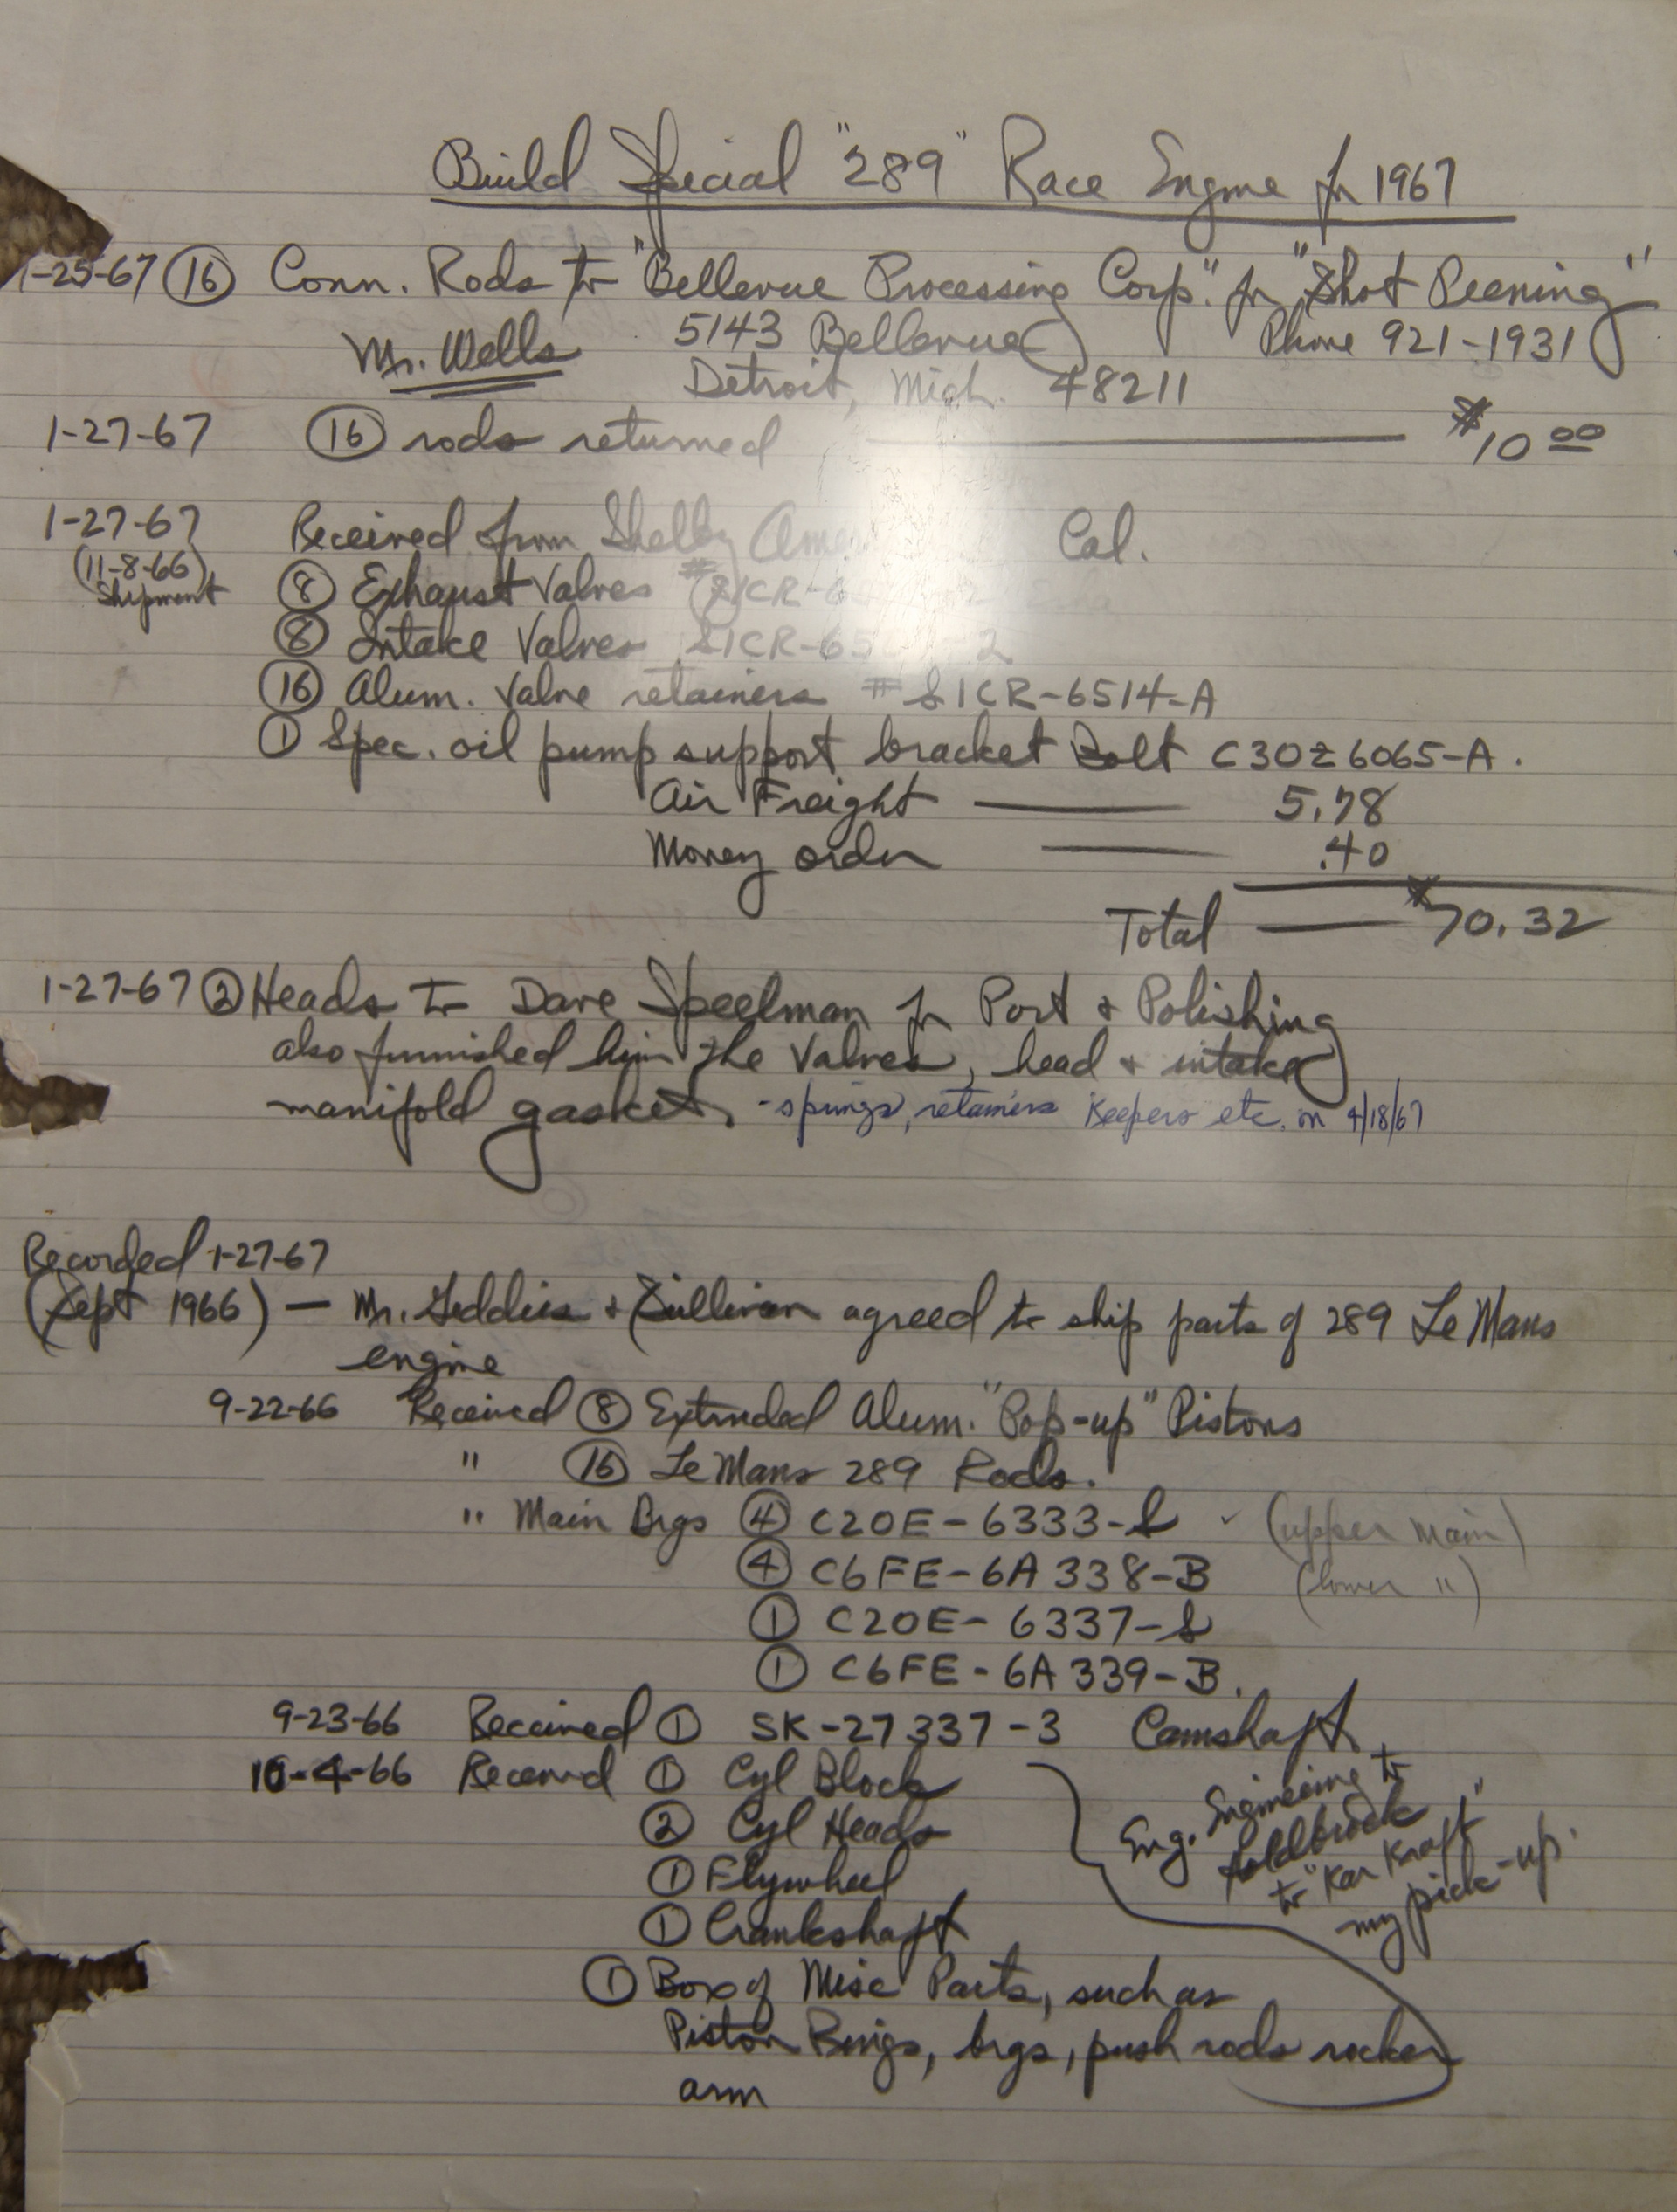 Build Special "289" Race Engine for 1967
1-25-67 (16) Conn. Rods to "Bellevue Processing Corp." for "Shot Peening"
Mr. Wells 5143 Bellevue Phone 921-1931
Detroit, Mich. 48211
1-27-67 (16) rods returned $10.00
1-27-67 Received from Shelby Cal.
(11-8-66) (8) Exhaust Valves
Shipment
(8) Intake Valves
(16) Alum. Valve retainers # S1CR-6514-A
(1) Spec. oil pump support bracket Bolt C3OZ6065-A.
Air Freight 5.78
Money order .40
Total $70.32
1-27-67 (2) Heads to Dave Speelman for Port & Polishing
also furnished him the Valves, head & intake
manifold gaskets, - springs, retainers Keepers etc. on 4/18/67
Recorded 1-27-67
(Sept 1966) — Mr. Geddies & Sullivan agreed to ship parts of 289 Le Mans
engine
9-22-66 Received (8) Extruded Alum. "Pop-up" Pistons
" (16) Le Mans 289 Rods.
" Main Brgs (4) C2OE-6333-S (upper main)
(4) C6FE-6A338-B (lower ")
(1) C2OE-6337-S
(1) C6FE-6A339-B.
9-23-66 Received (1) SK-27337-3 Camshaft
10-4-66 Received (1) Cyl Block
(2) Cyl Heads
(1) Flywheel
(1) Crankshaft
(1) Box of Misc Parts, such as
Piston Rings, brgs, push rods rocker
arm
Eng. Engineering to
to "Kar Kraft"
my pick-up.